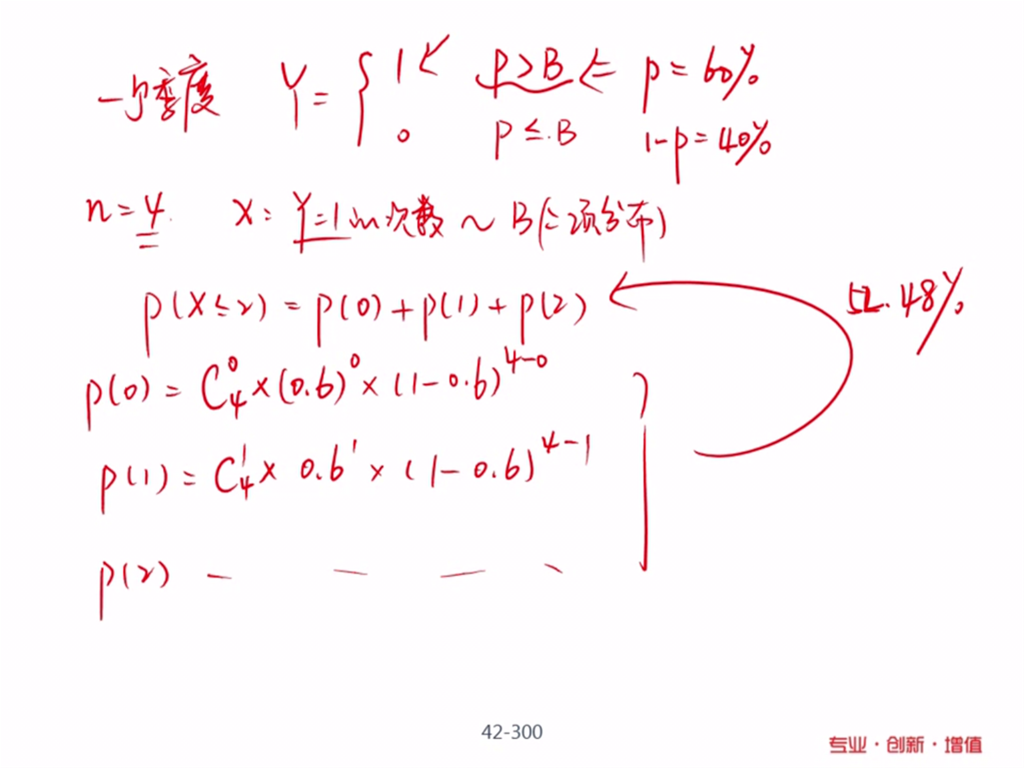 一个季度 Y = { 1 P > B ⇐ p = 60%
0 P ≤ B 1-p = 40%
n = 4. X: Y=1的次数 ~ B(二项分布)
P(X≤2) = P(0) + P(1) + P(2) 52.48%
P(0) = C₄⁰ × (0.6)⁰ × (1-0.6)⁴⁻⁰
P(1) = C₄¹ × 0.6¹ × (1-0.6)⁴⁻¹
P(2) — — — —
42-300
专业·创新·增值